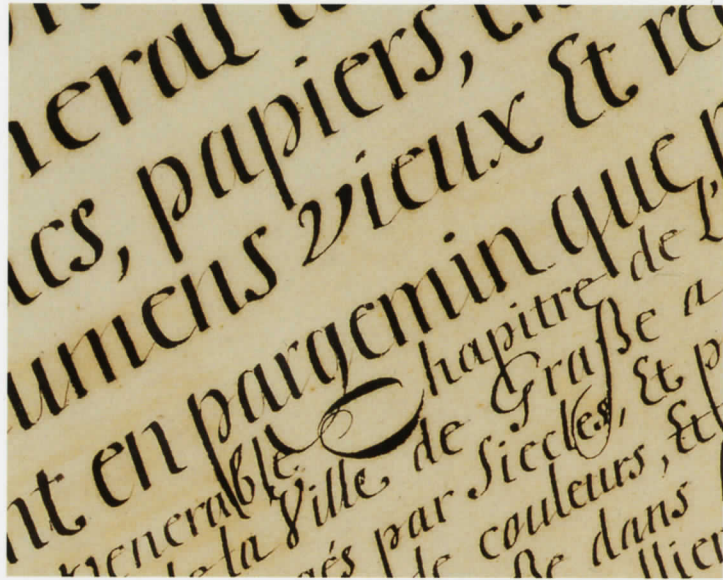 neral
acs, papiers,
umens vieux Et
nt en pargemin que
venerable Chapitre de L'
de la Ville de Graße a
gés par Siecles, Et
de couleurs, Et
ße dans